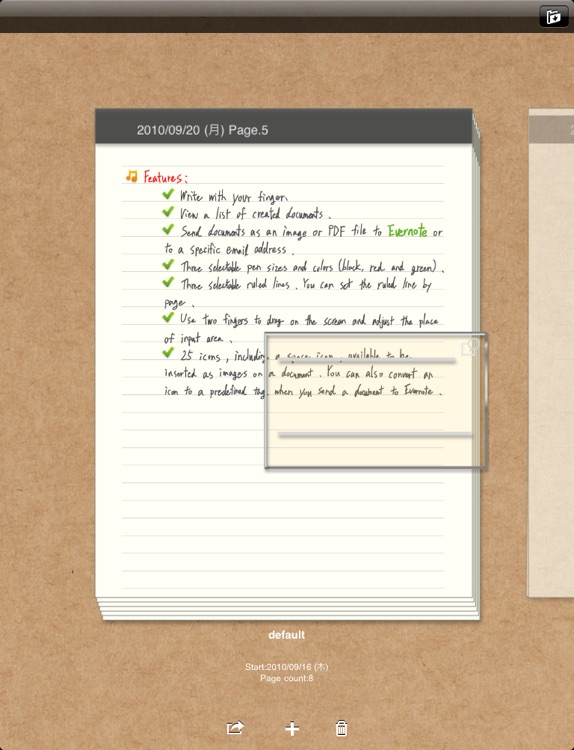 2010/09/20 (月) Page.5
Features:
Write with your finger.
View a list of created documents.
Send documents as an image or PDF file to Evernote or
to a specific email address.
Three selectable pen sizes and colors (black, red and green).
Three selectable ruled lines. You can set the ruled line by
page.
Use two fingers to drag on the screen and adjust the place
of input area.
25 icons, including a space icon, available to be
inserted as images on a document. You can also convert an
icon to a predefined tag when you send a document to Evernote.
default
Start:2010/09/16 (木)
Page count:8